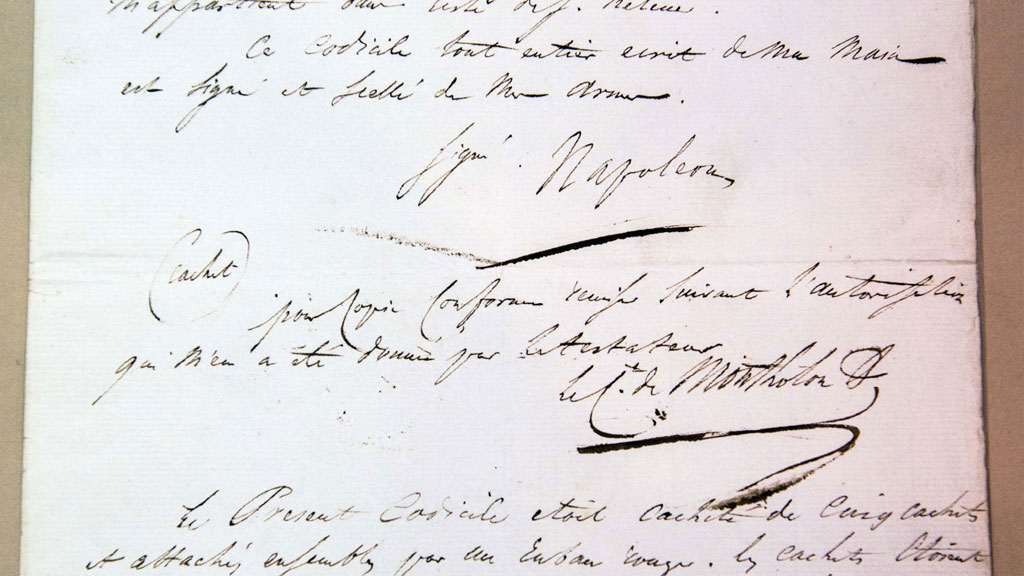 m'appartient dans l'isle de Ste. Helene.
Ce Codicile tout entier ecrit de Ma Main
est Signé et Scellé de Mes Armes.
Signé. Napoleon
(cachet)
pour Copie Conforme remise Suivant l'autorisation
qui m'en a été donnée par le testateur
Le Ct. de Montholon
Le Present Codicile etoit cacheté de Cinq cachets
et attachés ensembles par un Ruban rouge. les cachets étoient